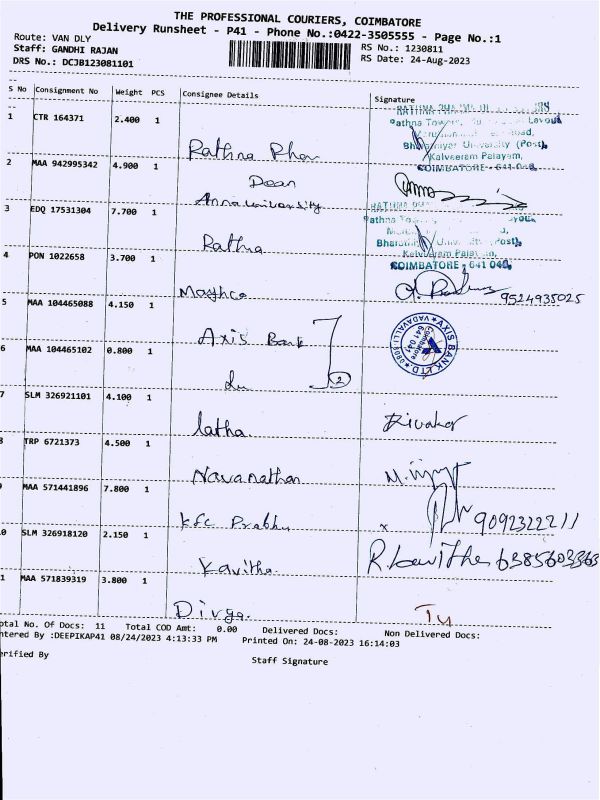 THE PROFESSIONAL COURIERS, COIMBATORE
Delivery Runsheet - P41 - Phone No.:0422-3505555 - Page No.:1
Route: VAN DLY
Staff: GANDHI RAJAN
DRS No.: DCJB123081101
RS No.: 1230811
RS Date: 24-Aug-2023
S No Consignment No Weight PCS Consignee Details Signature
1 CTR 164371 2.400 1
Rathna
Rathna Towers, Layout
Road,
Bharathiyar University (Post),
Kalveeram Palayam,
COIMBATORE - 641 046.
2 MAA 942995342 4.900 1
Dean
Anna university
3 EDQ 17531304 7.700 1
Rathna
Bharathiyar University (Post),
Kalveeram Palayam,
COIMBATORE - 641 046.
4 PON 1022658 3.700 1
9524935025
5 MAA 104465088 4.150 1
Axis Bank
AXIS BANK LTD
VADAVALLI
Coimbatore
641 041
6 MAA 104465102 0.800 1
2
7 SLM 326921101 4.100 1
latha
Divakar
8 TRP 6721373 4.500 1
Navanathan
9 MAA 571441896 7.800 1
kfc Prabhu
x 9092322211
0 SLM 326918120 2.150 1
Kavitha
R. kavitha 6385603363
1 MAA 571839319 3.800 1
Divya
otal No. Of Docs: 11 Total COD Amt: 0.00 Delivered Docs: Non Delivered Docs:
ntered By :DEEPIKAP41 08/24/2023 4:13:33 PM Printed On: 24-08-2023 16:14:03
erified By Staff Signature